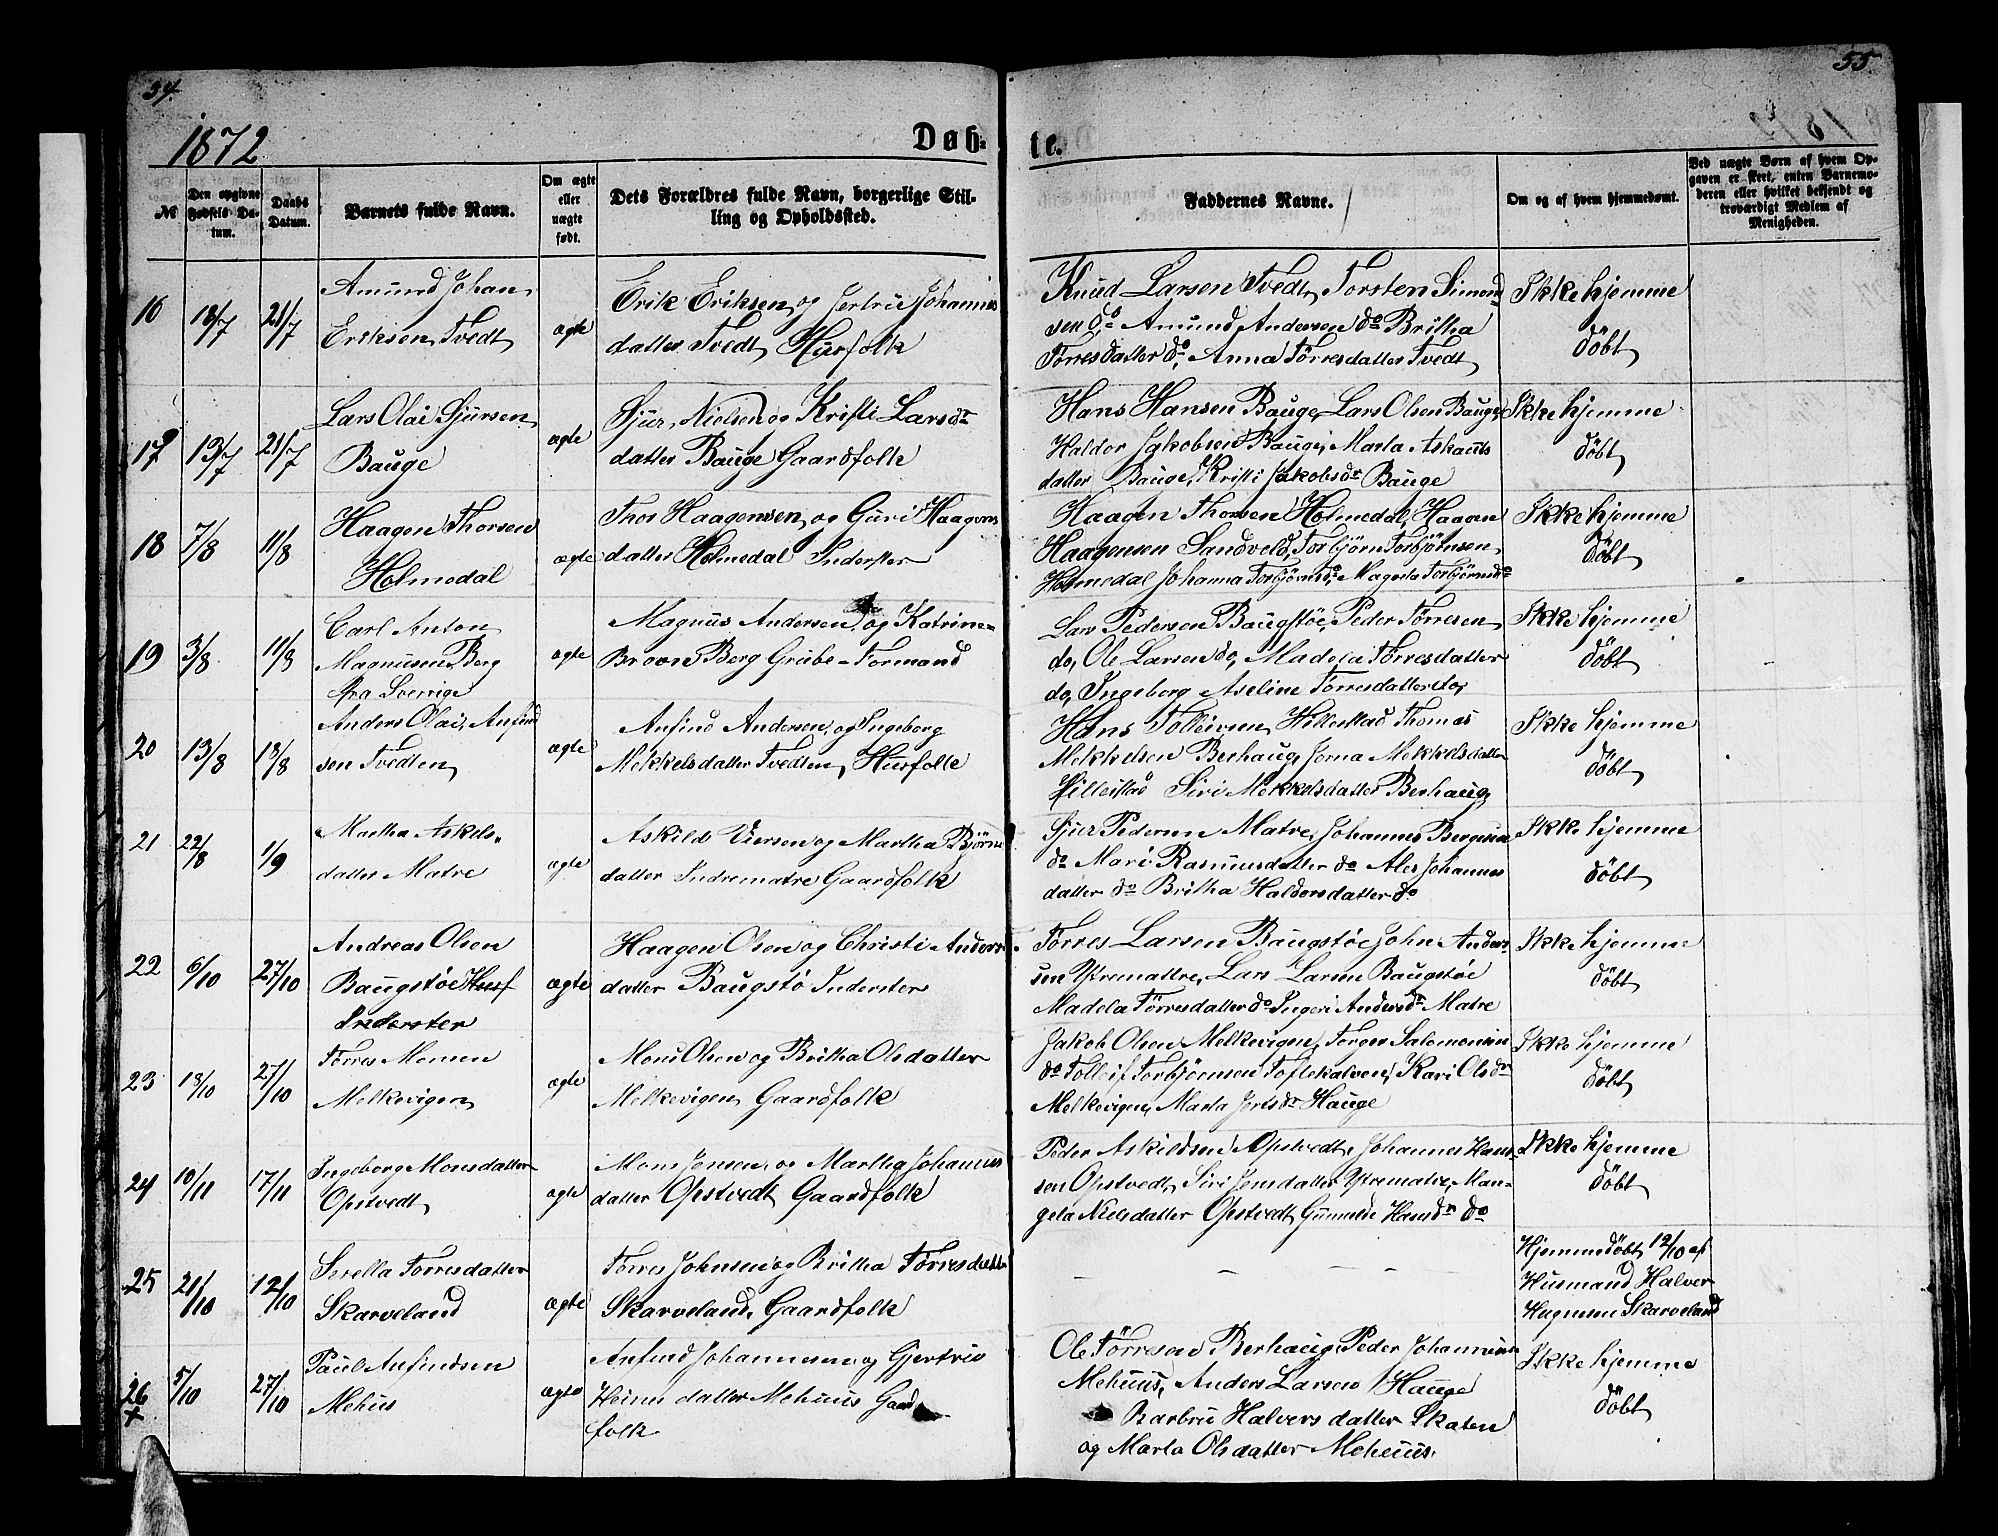 54.
55.
1872
Døb-
te.
№
Den opgivne Fødsels Datum.
Daabs Datum.
Barnets fulde Navn.
Om ægte eller uægte født.
Dets Forældres fulde Navn, borgerlige Stilling og Opholdssted.
Faddernes Navne.
Om og af hvem hjemmedøbt.
Ved uægte Børn af hvem Opgaven er skeet, enten Barnemoderen eller hvilket bekjendt og troværdigt Medlem af Menigheden.
16 18/7 21/7
Amund Johan
Eriksen Tvedt
ægte
Erik Eriksen og Jertrü Johannes
datter Tvedt Husfolk
Knud Larsen Tvedt, Torsten Simond
sen do Amund Andersen do Britha
Tørresdatter do, Anna Tørresdatter Tvedt
Ikke hjemme
døbt
17 13/7 21/7
Lars Olai Sjursen
Bauge
ægte
Sjur Nielsen og Kristi Larsdr
datter Bauge Gaardfolk
Hans Hansen Bauge, Lars Olsen Bauge
Haldor Jakobsen Bauge, Marta Askauts
datter Bauge, Kristi Jakobsdr Bauge
Ikke hjemme
døbt
18 7/8 11/8
Haagen Thorsen
Holmedal
ægte
Thor Haagensen og Guri Haagens
datter Holmedal Inderster
Haagen Thorsen Holmedal, Haagen
Haagensen Sandvold, Torbjørn Torbjørnsen
Holmedal Johanna Torbjørnsdr Magela Torbjørnsdr
Ikke hjemme
døbt
19 3/8 11/8
Carl Anton
Magnusen Berg
fra Sverrige
ægte
Magnus Andersen og Katrine
Broon Berg Grube-Formand
Lars Pedersen Baugstøe, Peder Tørresen
do, Ole Larsen do, Madela Tørresdatter
do, Ingeborg Aseline Tørresdatter do,
Ikke hjemme
døbt
20 13/8 18/8
Anders Olai Anfind
sen Tvedten
ægte
Anfind Andersen og Ingeborg
Mekkelsdatter Tvedten, Husfolk
Hans Tolleivsen Hillestad Thomas
Mekkelsen Berhaug, Jorna Mekkelsdatter
Hillestad Siri Mekkelsdatter Berhaug
Ikke hjemme
døbt
21 22/8 1/9
Martha Askels-
datter Matre
ægte
Askild Iversen og Martha Bjørns
datter Indrematre Gaardfolk
Sjur Pedersen Matre, Johannes Bergesen
do Mari Rasmusdatter do Ales Johannes
datter do Britha Haldorsdatter do
Ikke hjemme
døbt
22 6/10 27/10
Andreas Olsen
Baugstøe Husf
Inderster
ægte
Haagen Olsen og Christi Anders
datter Baugstø Inderster
Tørres Larsen Baugstøe John Anders
sen Ytremattre, Lars Larsen Baugstøe
Madela Tørresdatter do Ingeri Andersdr Matre
Ikke hjemme
døbt
23 13/10 27/10
Tørres Monsen
Melkevigen
ægte
Mons Olsen og Britha Olsdatter
Melkevigen Gaardfolk
Jakob Olsen Melkevigen, Torger Salomonsen
do Tolleif Torbjørnsen Toftekalven, Kari Olsdr
Melkevigen, Marta Jertsdr Hauge
Ikke hjemme
døbt
24 10/11 17/11
Ingeborg Monsdatter
Opstvedt
ægte
Mons Jensen og Martha Johannes
datter Opstvedt Gaardfolk
Peder Askildsen Opstvedt, Johannes Han-
sen Opstvedt, Siri Jensdatter Ytrematre, Man-
gela Nielsdatter Opstvedt Gunnilde Hansdr do
Ikke hjemme
døbt
25 21/10 12/10
Serella Tørresdatter
Skarveland
ægte
Tørres Johnsen og Britha Tørresdatter
Skarveland, Gaardfolk
– – – –
Hjemmedøbt 12/10 af
Husmand Halver
Skarveland
26 5/10 27/10
+
Paul Anfindsen
Mehus
ægte
Anfind Johannesen og Gjertrud
Heines datter Mehuus Gaard
folk
Ole Tørresen Berhaug, Peder Johannesen
Mehuus, Anders Larsen Hauge
Barbru Halvers datter Skaten
og Marta Olsdatter Mehuus.
Ikke hjemme
døbt